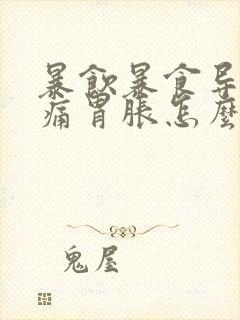 暴飲暴食导
痛胃胀怎麼
鬼屋